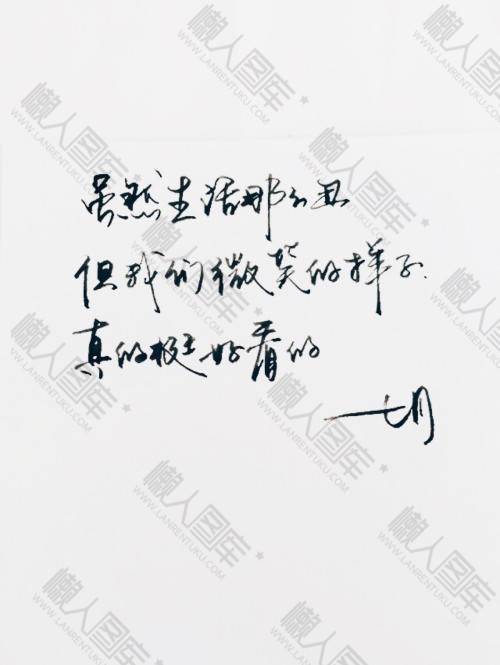 虽然生活那么丑
但我们微笑的样子
真的挺好看的
七月
懒人图库
WWW.LANRENTUKU.COM